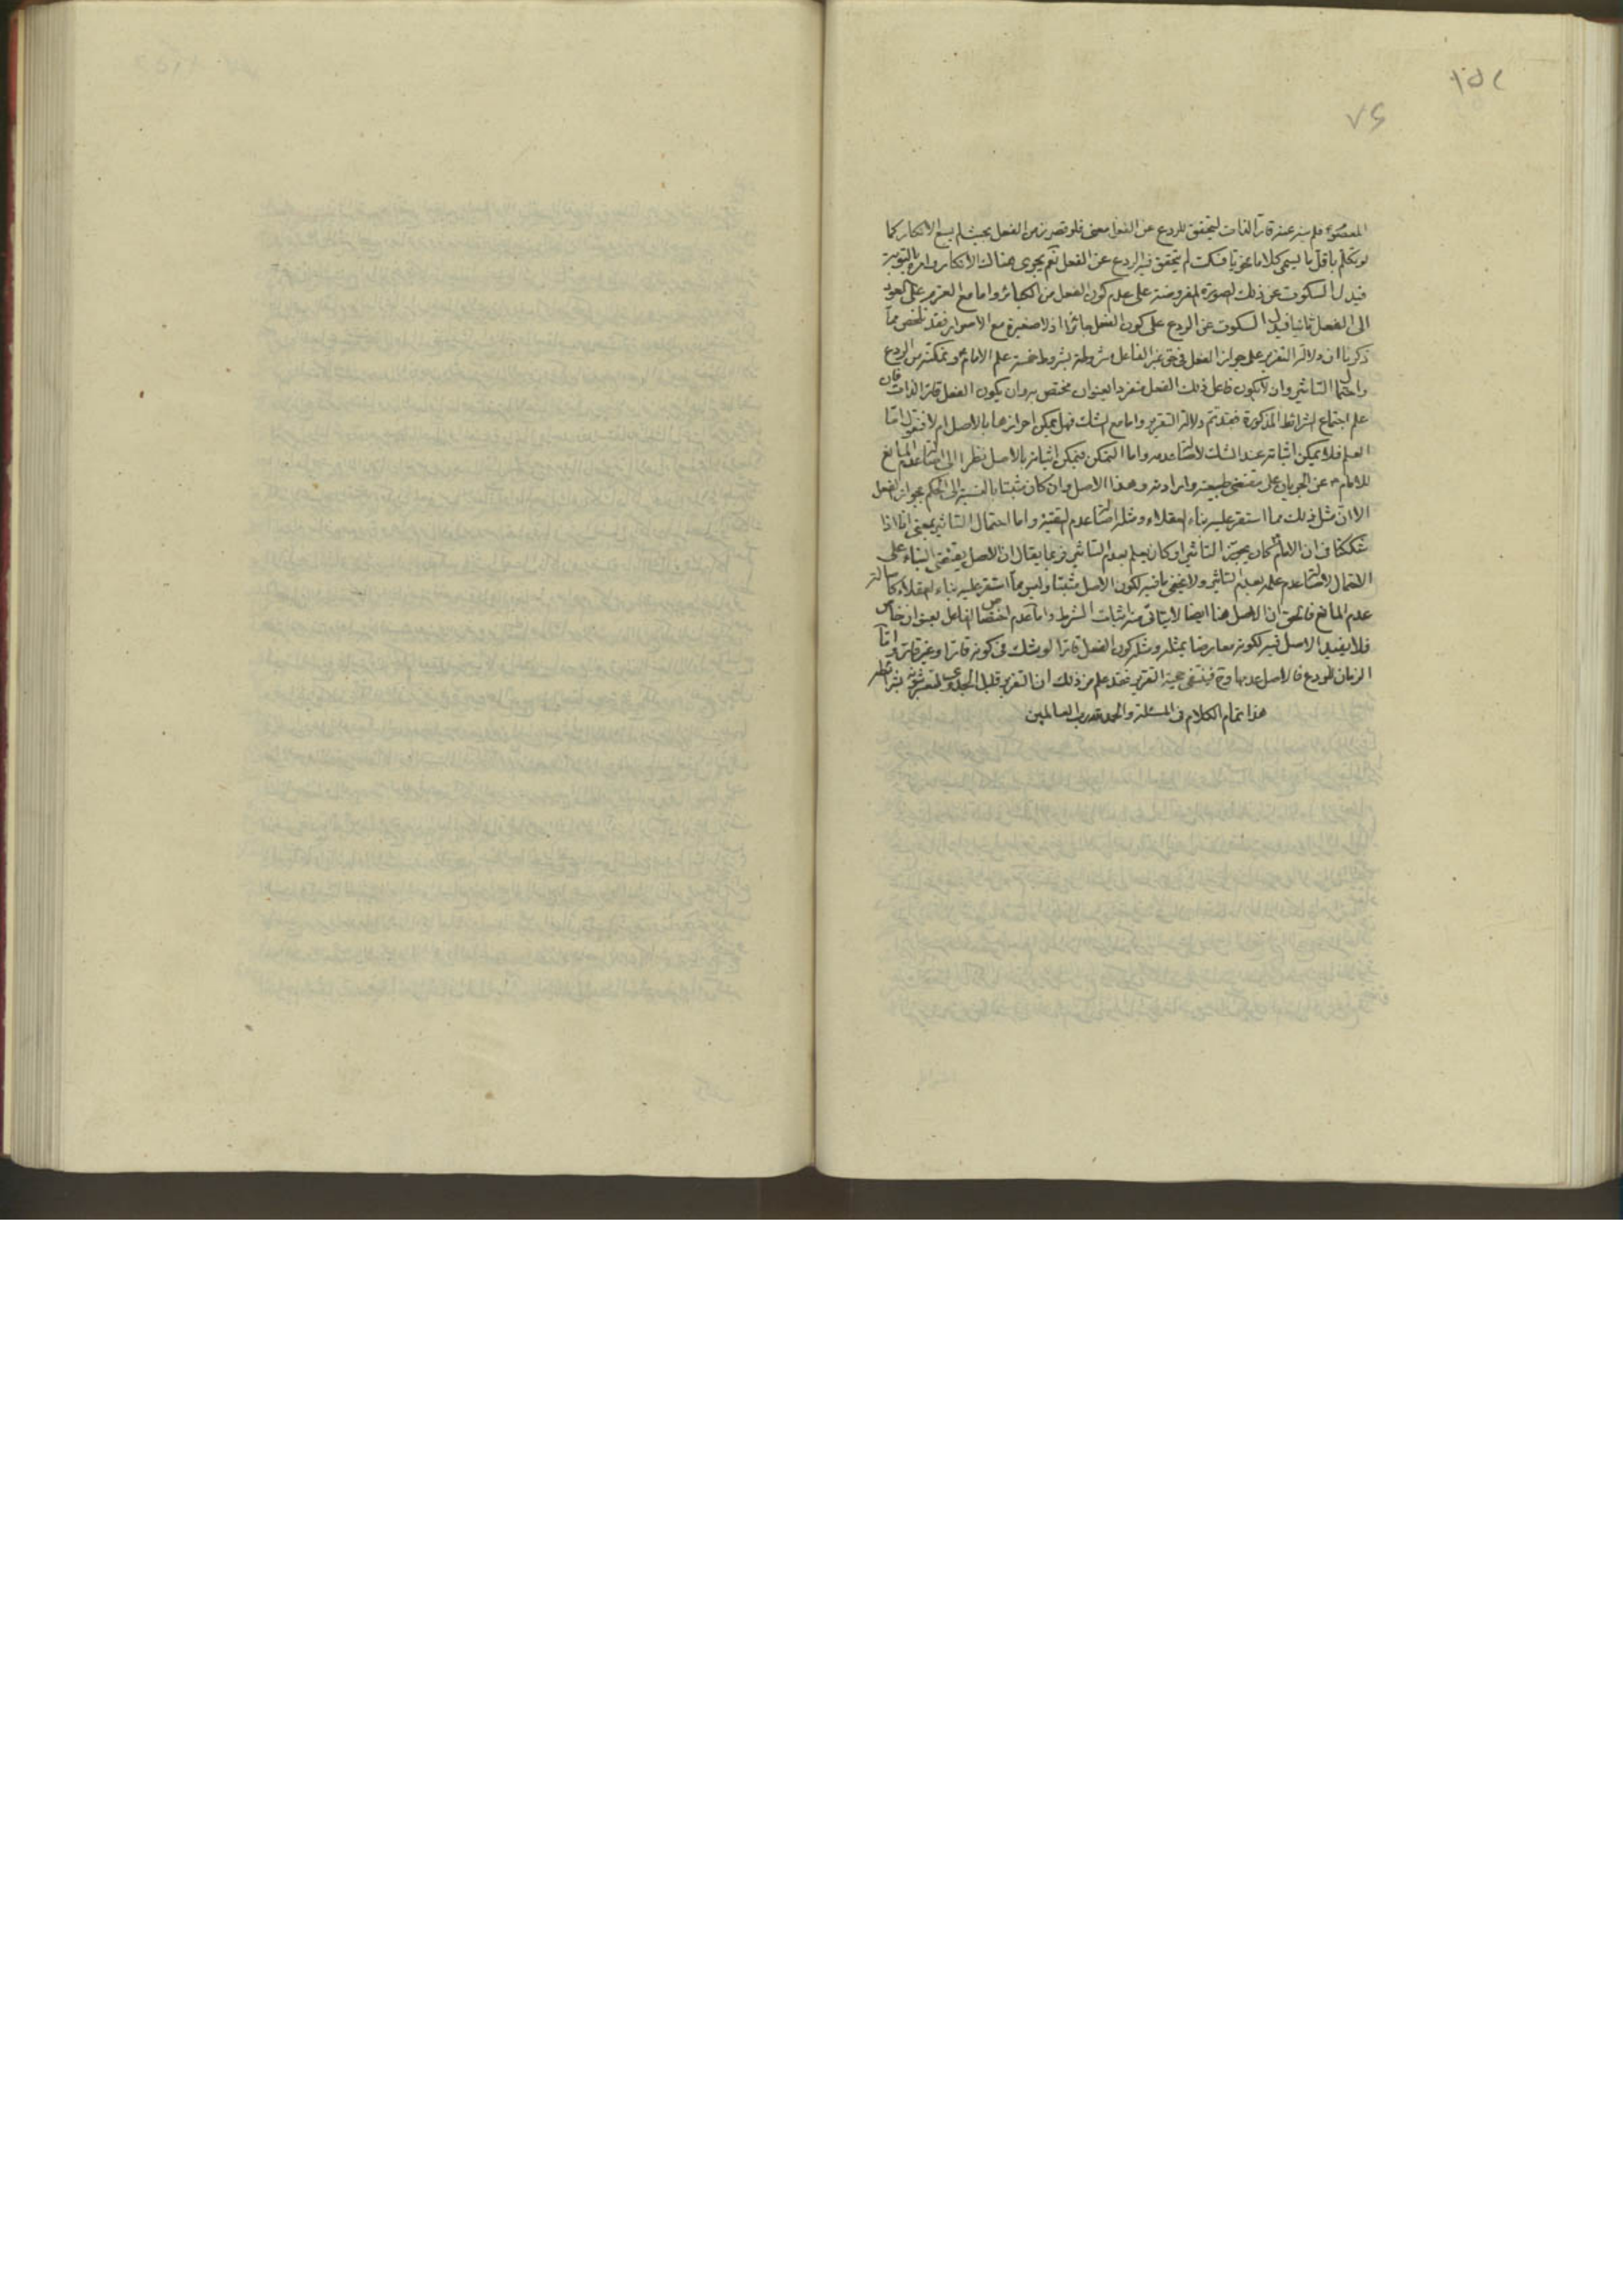 ١٥٢
٧٤
المعصوم فلم ينه عنه قارّ الذات ليتحقق للردع عن الفعل معنى فلو قصر زمن الفعل بحيث لم يسع الانكار كما
لو تكلم باقل ما يسمى كلاما نحويا فسكت لم يتحقق فيه الردع عن الفعل نعم يجرى هناك الانكار وامره بالتوبة
فيدل السكوت عن ذلك الصورة المفروضة على عدم كون الفعل من الكبائر واما مع العزم على العود
الى الفعل ثانيا فيدل السكوت عن الردع على كون الفعل جائزا اذ لا صغيرة مع الاصرار فقد تلخص مما
ذكرنا ان دلالة التقرير على جواز الفعل فى حق غير الفاعل مشروطة بشروط خمسة علم الامام ع وتمكنه من الردع
واحتمال التاثير وان لا يكون فاعل ذلك الفعل منفردا بعنوان مختص به وان يكون الفعل قارّ الذات فان
علم اجتماع الشرائط المذكورة فقد تم دلالة التقرير واما مع الشك فهل يمكن احرازها بالاصل ام لا فنقول امّا
العلم فلا يمكن اثباته عند الشك لاصالة عدمه واما التمكن فيمكن اثباته بالاصل نظرا الى اصالة عدم المانع
للامام ع عن الجريان على مقتضى طبيعته وارادته وهذا الاصل وان كان مثبتا بالنسبة الى الحكم بجواز الفعل
الا ان مثل ذلك مما استقر عليه بناء العقلاء ومثله اصالة عدم التقية واما احتمال التاثير بمعنى انا اذا
شككنا فى ان الامام ع كان يجوّز التاثير او كان يعلم بعدم التاثير فربما يقال ان الاصل يقتضى البناء على
الاحتمال لاصالة عدم علمه بعدم التاثير ولا يخفى ما فيه لكون الاصل مثبتا وليس مما استقر عليه بناء العقلاء كاصالة
عدم المانع فالحق ان الاصل هنا ايضا لا يتاتى منه اثبات الشرط واما عدم اختصاص الفاعل بعنوان خاص
فلا يفيد الاصل فيه لكونه معارضا بمثله ومثله كون الفعل قارا لو شك فى كونه قارا وغير قار وامّا
الزمان للردع فالاصل عدمها وح فينتفى حجية التقرير فقد علم من ذلك ان التقرير قليل الجدوى لتعسر ثبوت شرائطه
هذا تمام الكلام فى المسئلة والحمد لله رب العالمين